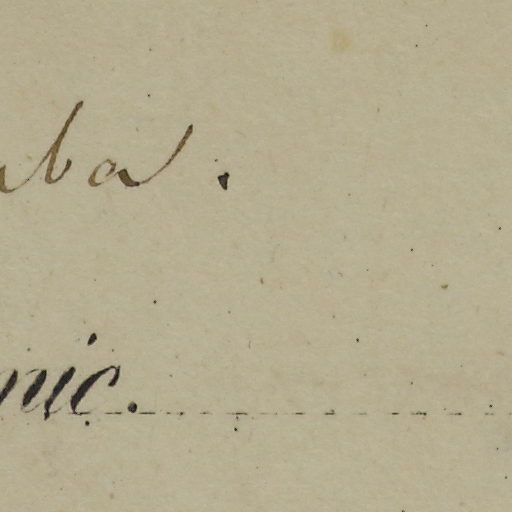 ba.
nic.